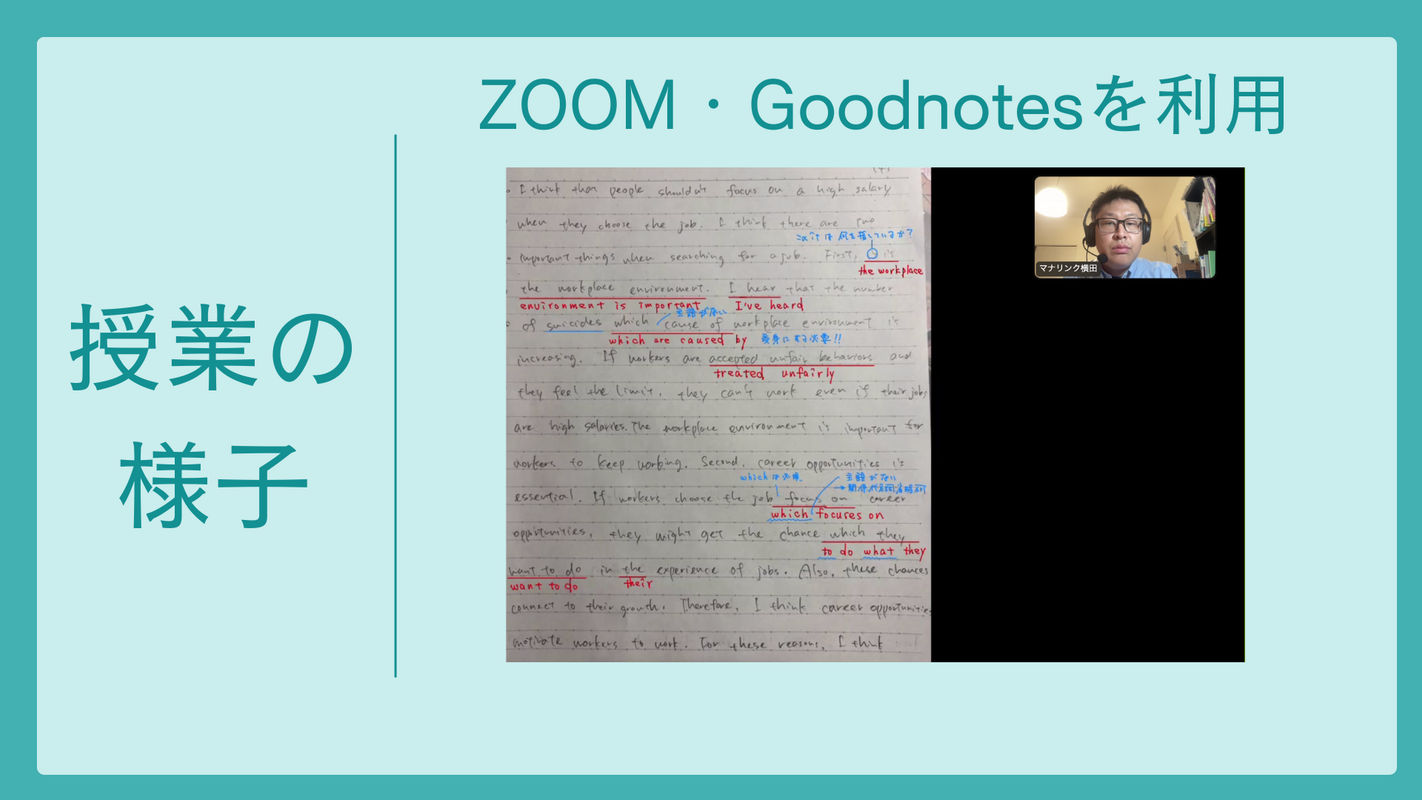 授業の
様子
ZOOM・Goodnotesを利用
its
I think that people shouldn't focus on a high salary
when they choose the job. I think there are two
このitは何を指しているか？
important things when searching for a job. First, it is
the workplace
the workplace environment. I hear that the number
environment is important I've heard
主語がない
of suicides which cause of workplace environment is
which are caused by 受身にする必要!!
increasing. If workers are accepted unfair behaviors and
treated unfairly
they feel the limit, they can't work even if their jobs
are high salaries. The workplace environment is important for
workers to keep working. Second, career opportunities is
whichは必要 主語がない
→関係代名詞省略不可
essential. If workers choose the job focus on career
which focuses on
opportunities, they might get the chance which they
to do what they
want to do in the experience of jobs. Also, these chances
want to do their
connect to their growth. Therefore, I think career opportunities
motivate workers to work. For these reasons, I think
マナリンク横田